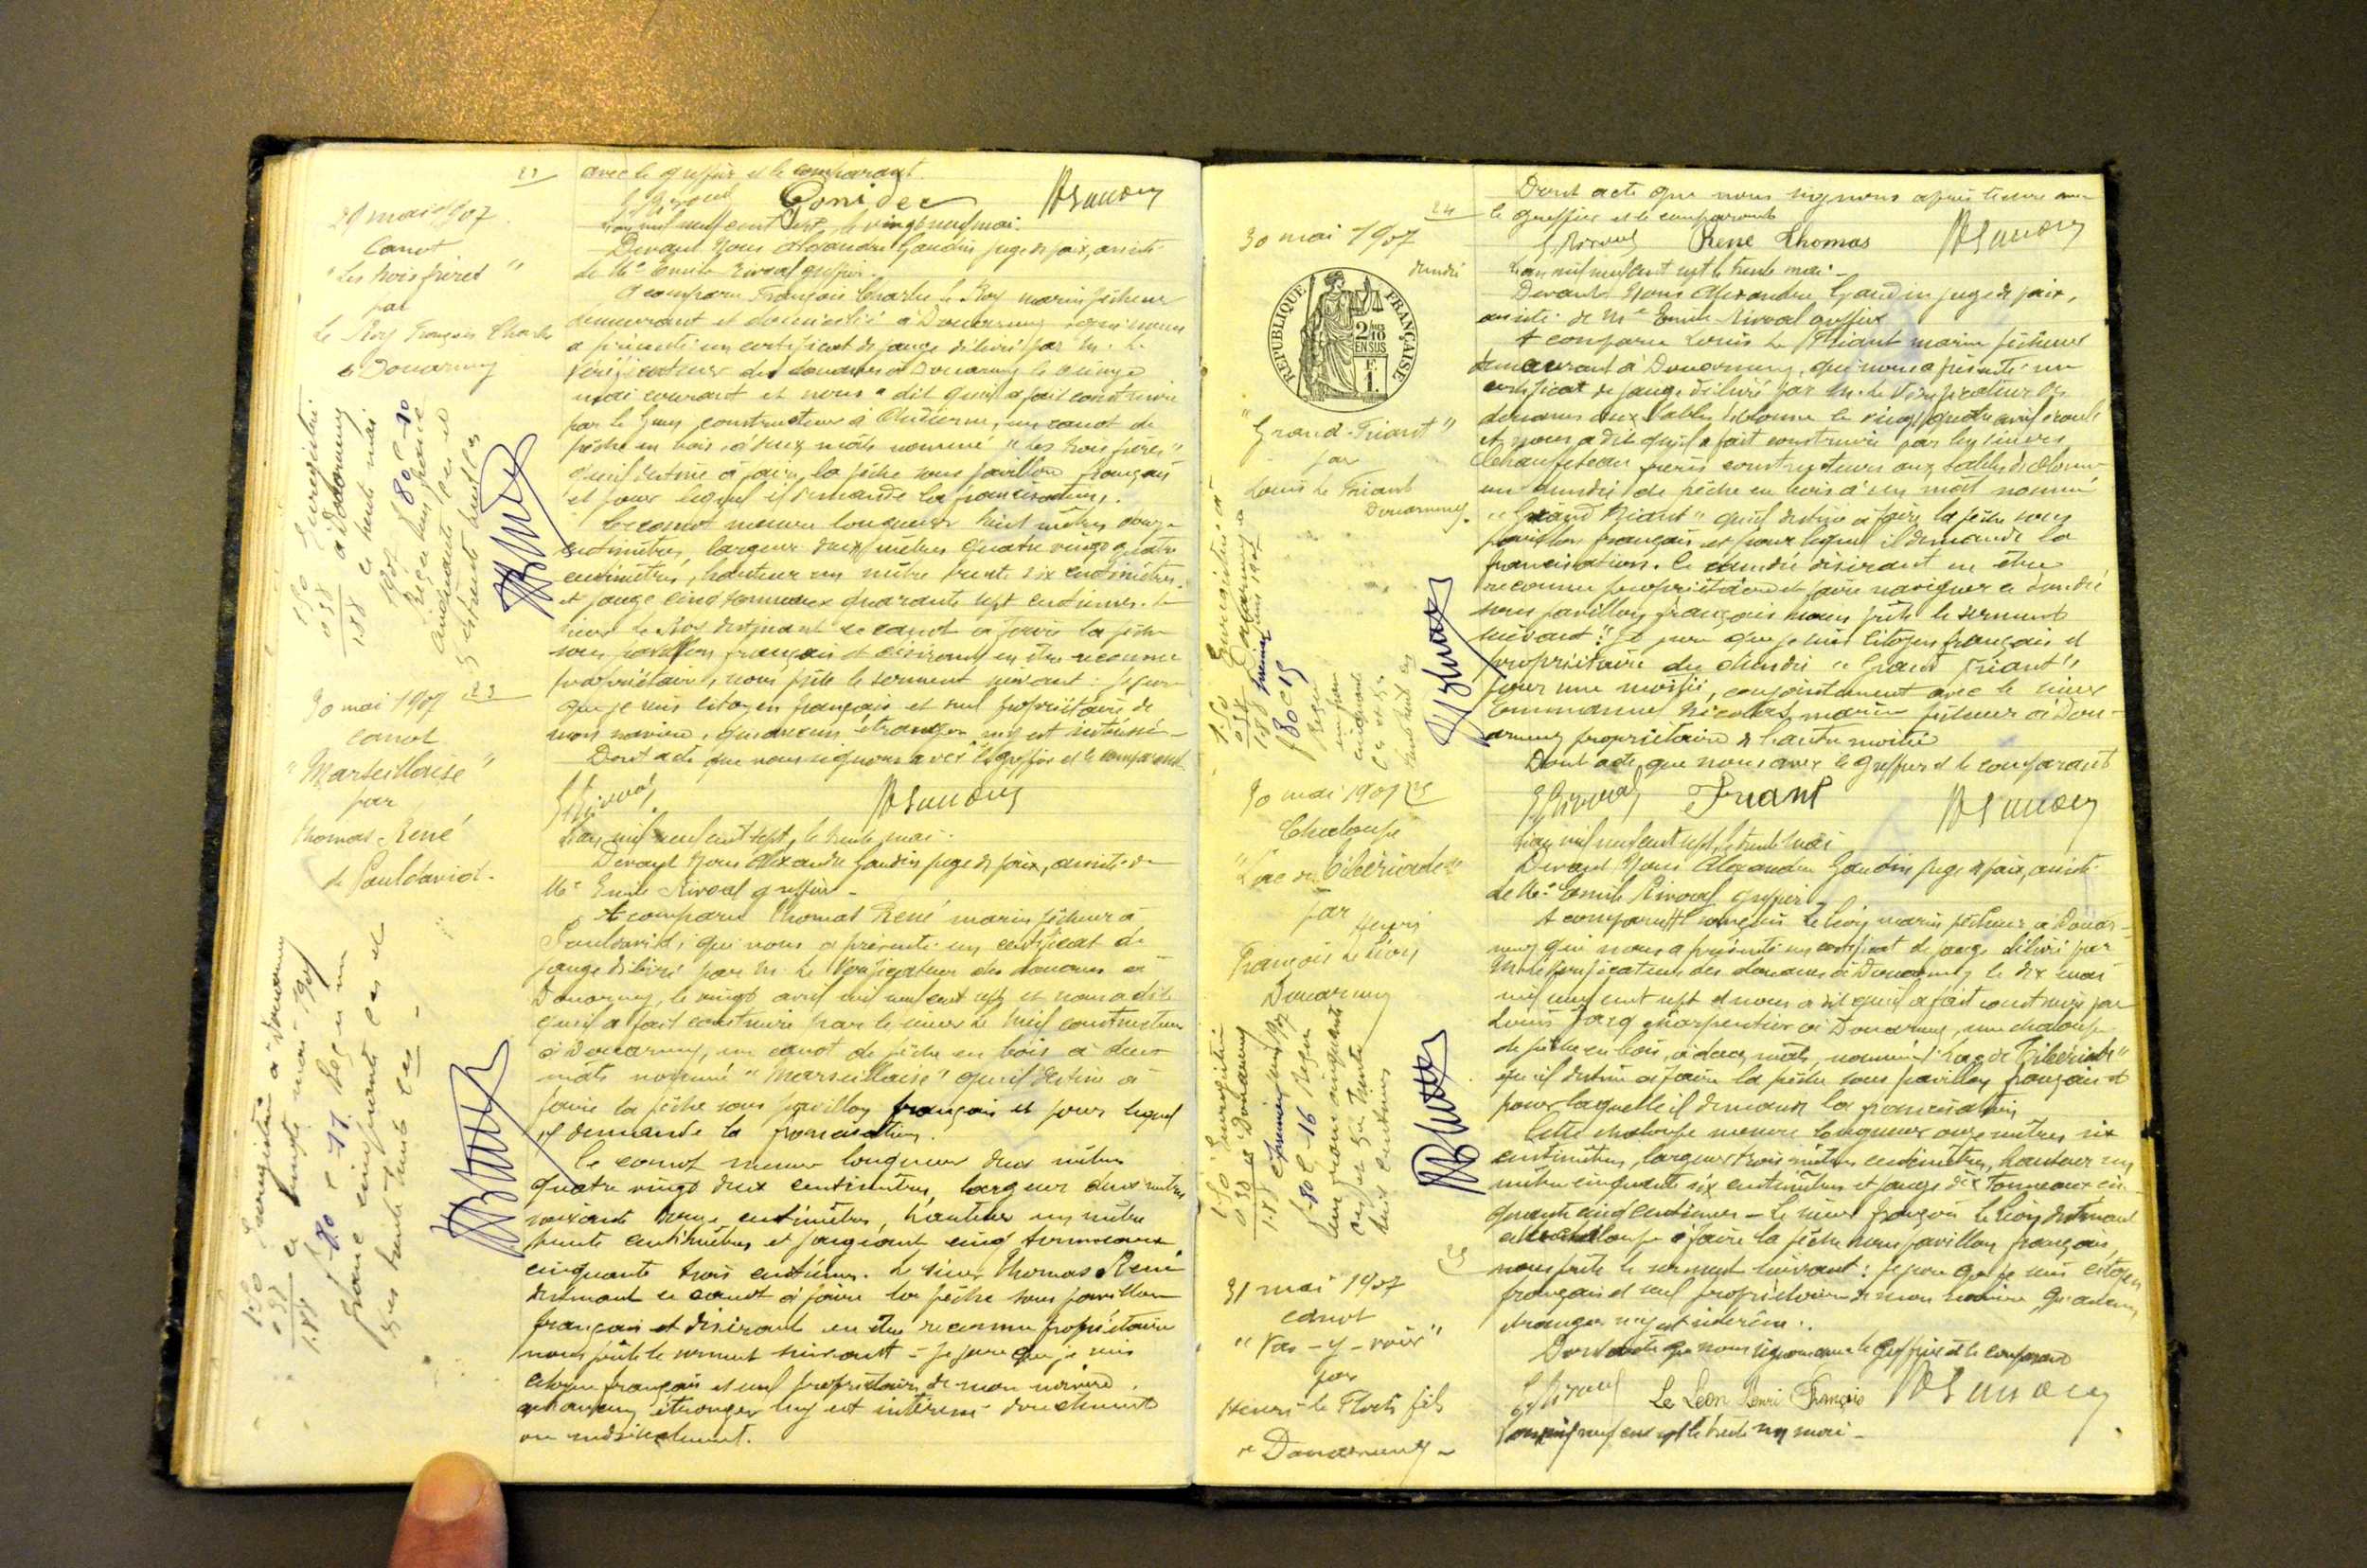 22
avec le greffier et le comparant.
Gonidec
29 mai 1907.
Canot
"Les trois frères"
par
Le Roy François Charles
à Douarnenez
L'an mil neuf cent sept, le vingt neuf mai.
Devant Nous Alexandre Gaudin juge de paix, assisté
de Me Emile Rivoal greffier.
A comparu François Charles Le Roy marin pêcheur
demeurant et domicilié à Douarnenez qui nous
a présenté un certificat de jauge délivré par M. le
Vérificateur des douanes à Douarnenez le quinze
mai courant et nous a dit qu'il a fait construire
par le constructeur à Audierne, un canot de
pêche en bois, à deux mâts nommé "Les trois frères"
qu'il destine à faire la pêche sous pavillon français
et pour lequel il demande la francisation.
Ce canot mesure longueur huit mètres onze
centimètres, largeur deux mètres quatre vingt quatre
centimètres, hauteur un mètre trente six centimètres
et jauge cinq tonneaux quarante sept centièmes. Le
sieur Le Roy destinant ce canot à faire la pêche
sous pavillon français et désirant en être reconnu
propriétaire, nous prête le serment suivant : je jure
que je suis citoyen français et seul propriétaire de
mon navire, qu'aucun étranger n'y est intéressé
Dont acte que nous signons avec le greffier et le comparant.
Enregistré
à Douarnenez
le trente mai
1907
23
30 mai 1907
Canot
"Marseillaise"
par
Thomas René
de Pouldavid.
L'an mil neuf cent sept, le trente mai.
Devant Nous Alexandre Gaudin juge de paix, assisté de
Me Emile Rivoal greffier
A comparu Thomas René marin pêcheur à
Pouldavid, qui nous a présenté un certificat de
jauge délivré par M. le Vérificateur des douanes à
Douarnenez, le vingt avril mil neuf cent sept et nous a dit
qu'il a fait construire par le sieur Le constructeur
à Douarnenez, un canot de pêche en bois à deux
mâts nommé "Marseillaise" qu'il destine à
faire la pêche sous pavillon français et pour lequel
il demande la francisation.
Ce canot mesure longueur mètres
quatre vingt deux centimètres, largeur deux mètres
soixante centimètres, hauteur un mètre
trente centimètres et jaugeant cinq tonneaux
cinquante trois centièmes. Le sieur Thomas René
destinant ce canot à faire la pêche sous pavillon
français et désirant en être reconnu propriétaire
nous prête le serment suivant : je jure que je suis
citoyen français et seul propriétaire de mon navire
qu'aucun étranger n'y est intéressé directement
ou indirectement.
1.50
0.38
1.88
Enregistré à Douarnenez
Dont acte que nous signons après lecture avec
le greffier et le comparant
René Thomas
24
30 mai 1907
dundée
RÉPUBLIQUE FRANÇAISE
2/10
EN SUS
F.
1.
"Grand Friant"
par
Louis Le Friant
Douarnenez.
L'an mil neuf cent sept le trente mai.
Devant Nous Alexandre Gaudin juge de paix,
assisté de Me Emile Rivoal greffier
A comparu Louis Le Friant marin pêcheur
demeurant à Douarnenez, qui nous a présenté un
certificat de jauge délivré par M. le Vérificateur des
douanes aux Sables d'Olonne le vingt quatre avril
et nous a dit qu'il a fait construire par les sieurs
frères constructeurs aux Sables d'Olonne
un dundée de pêche en bois à un mât nommé
"Grand Friant" qu'il destine à faire la pêche sous
pavillon français et pour lequel il demande la
francisation. Le désirant en être
reconnu propriétaire et faire naviguer ce dundée
sous pavillon français nous prête le serment
suivant : "Je jure que je suis citoyen français et
propriétaire du dundée "Grand Friant"
pour une moitié, conjointement avec le sieur
Emmanuel Nicolas, marin pêcheur à Douar-
nenez propriétaire de l'autre moitié
Dont acte que nous avec le greffier et le comparant
Friant
30 mai 1907 25
Chaloupe
"Lac de Tibériade"
par
Henri
François Le Léon
Douarnenez
L'an mil neuf cent sept, le trente mai
Devant Nous Alexandre Gaudin juge de paix, assisté
de Me Emile Rivoal greffier
A comparu François Le Léon marin pêcheur à Douar-
nenez qui nous a présenté un certificat de jauge délivré par
M. le Vérificateur des douanes à Douarnenez le dix mai
mil neuf cent sept et nous a dit qu'il a fait construire par
Louis charpentier à Douarnenez, une chaloupe
de pêche en bois, à deux mâts, nommée "Lac de Tibériade"
qu'il destine à faire la pêche sous pavillon français et
pour laquelle il demande la francisation
Cette chaloupe mesure longueur onze mètres six
centimètres, largeur trois mètres centimètres, hauteur un
mètre cinquante six centimètres et jauge dix tonneaux cin-
quante cinq centièmes - Le sieur François Le Léon destinant
cette chaloupe à faire la pêche sous pavillon français,
nous prête le serment suivant : je jure que je suis citoyen
français et seul propriétaire de mon navire qu'aucun
étranger n'y est intéressé.
Dont acte que nous signons avec le greffier et le comparant
Le Léon Henri François
31 mai 1907
Canot
"Vas-y-voir"
par
Henri Le Floch fils
à Douarnenez
L'an mil neuf cent sept le trente un mai